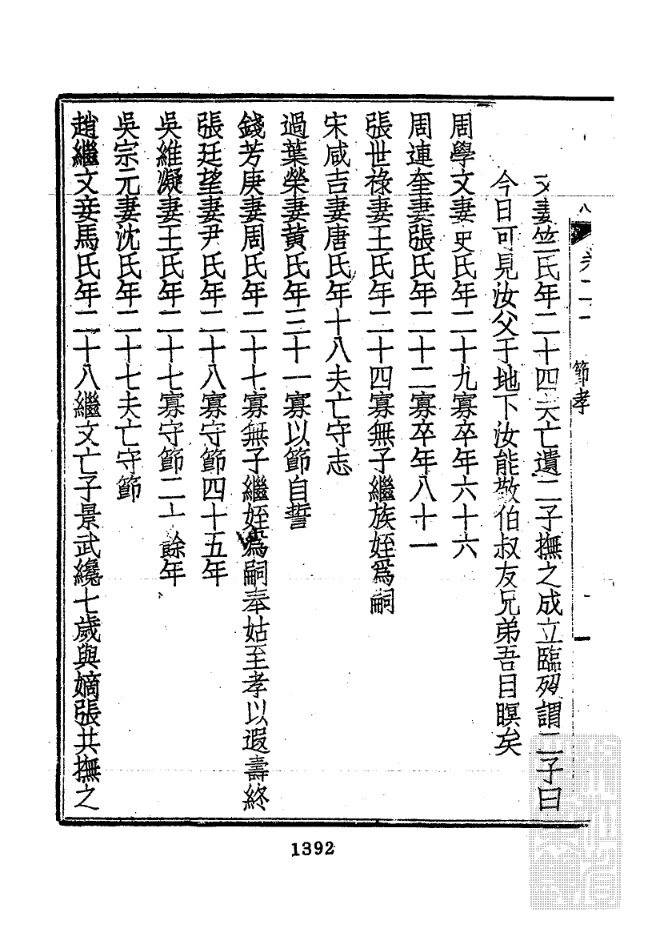 卷二十 節孝
妻竺氏年二十四夫亡遺二子撫之成立臨歿謂二子曰
今日可見汝父于地下汝能敬伯叔友兄弟吾目瞑矣
周學文妻史氏年二十九寡卒年六十六
周連奎妻張氏年二十二寡卒年八十一
張世祿妻王氏年二十四寡無子繼族姪爲嗣
宋咸吉妻唐氏年十八夫亡守志
過葉榮妻黃氏年三十一寡以節自誓
錢芳庚妻周氏年二十七寡無子繼姪爲嗣奉姑至孝以遐壽終
張廷望妻尹氏年二十八寡守節四十五年
吳維凝妻王氏年二十七寡守節二十餘年
吳宗元妻沈氏年二十七夫亡守節
趙繼文妾馬氏年二十八繼文亡子景武纔七歲與嫡張共撫之
1392